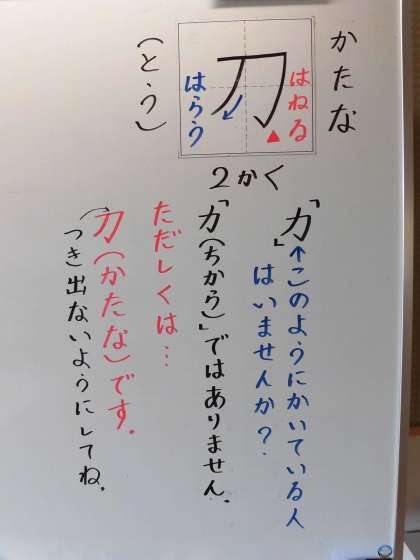 かたな
刀
はねる
はらう
(とう)
2かく
「力」↑このようにかいている人
はいませんか?
「力(ちから)」ではありません。
ただしくは…
刀(かたな)です。
(つき出ないようにしてね。